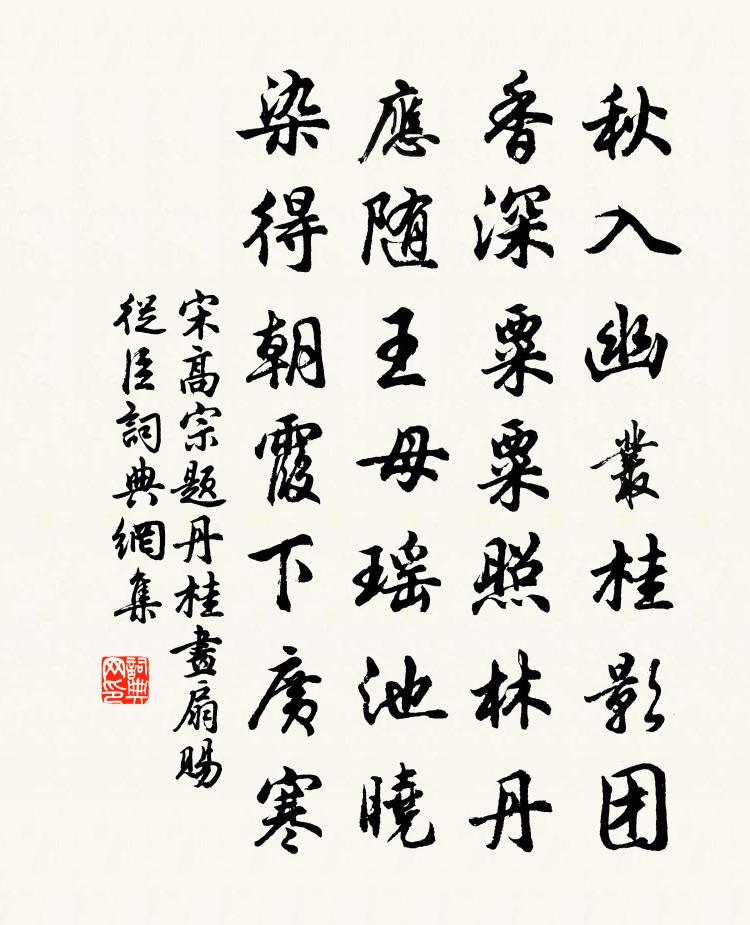 秋入幽叢桂影团
香深粟粟照林丹
應随王母瑶池曉
染得朝霞下廣寒
宋高宗题丹桂畫扇賜
從臣詞典網集
詞典网印